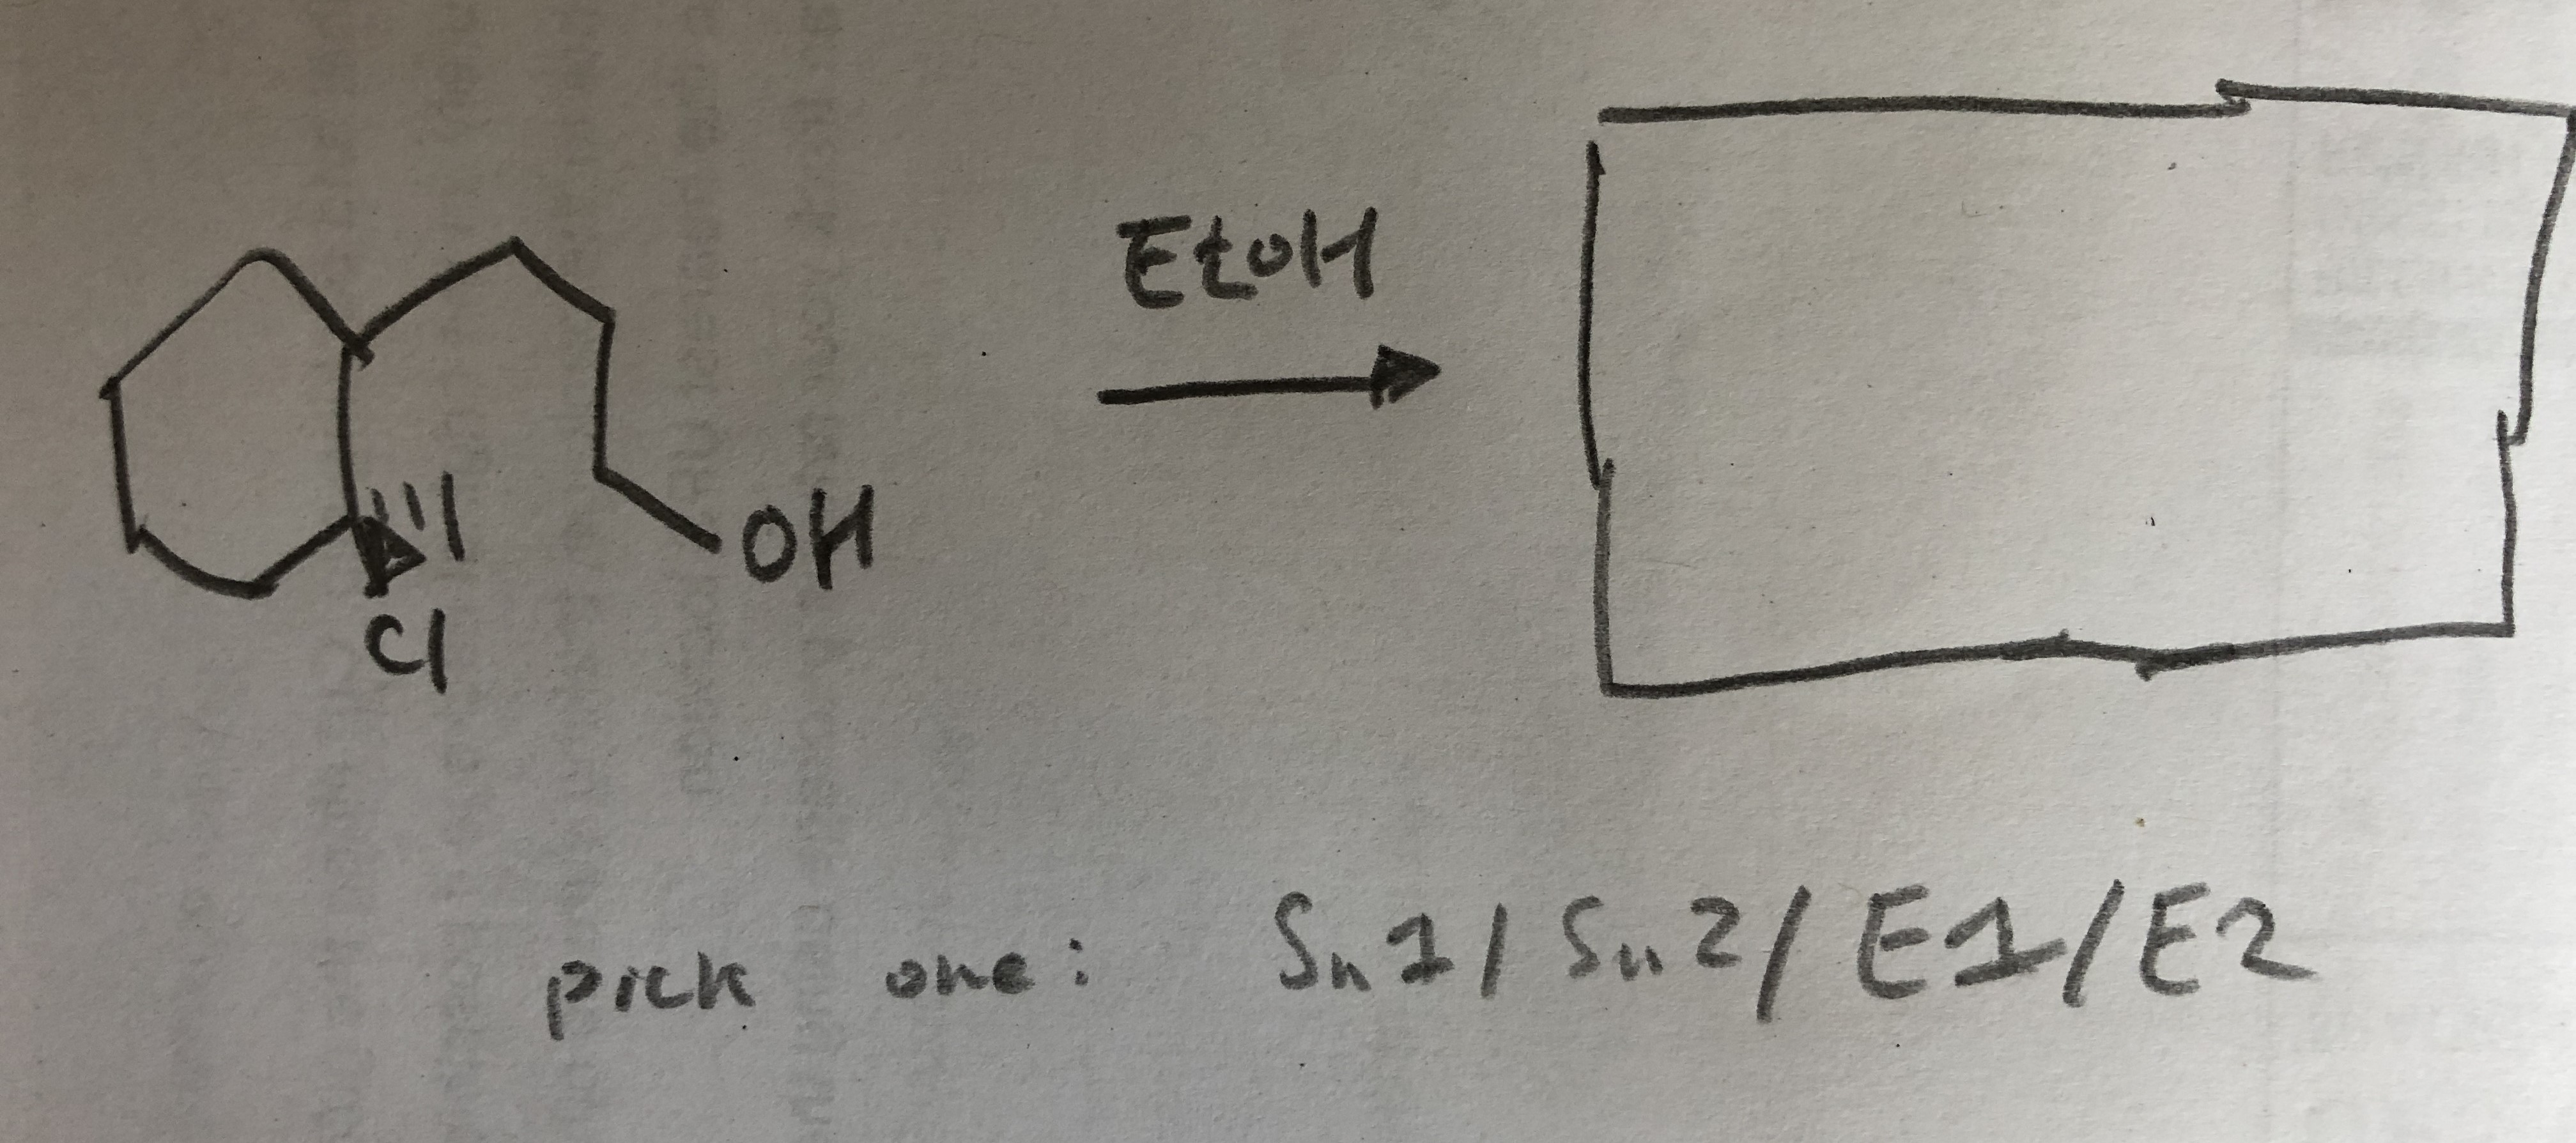 EtOH
OH
Cl
pick one: Sn1/Sn2/E1/E2